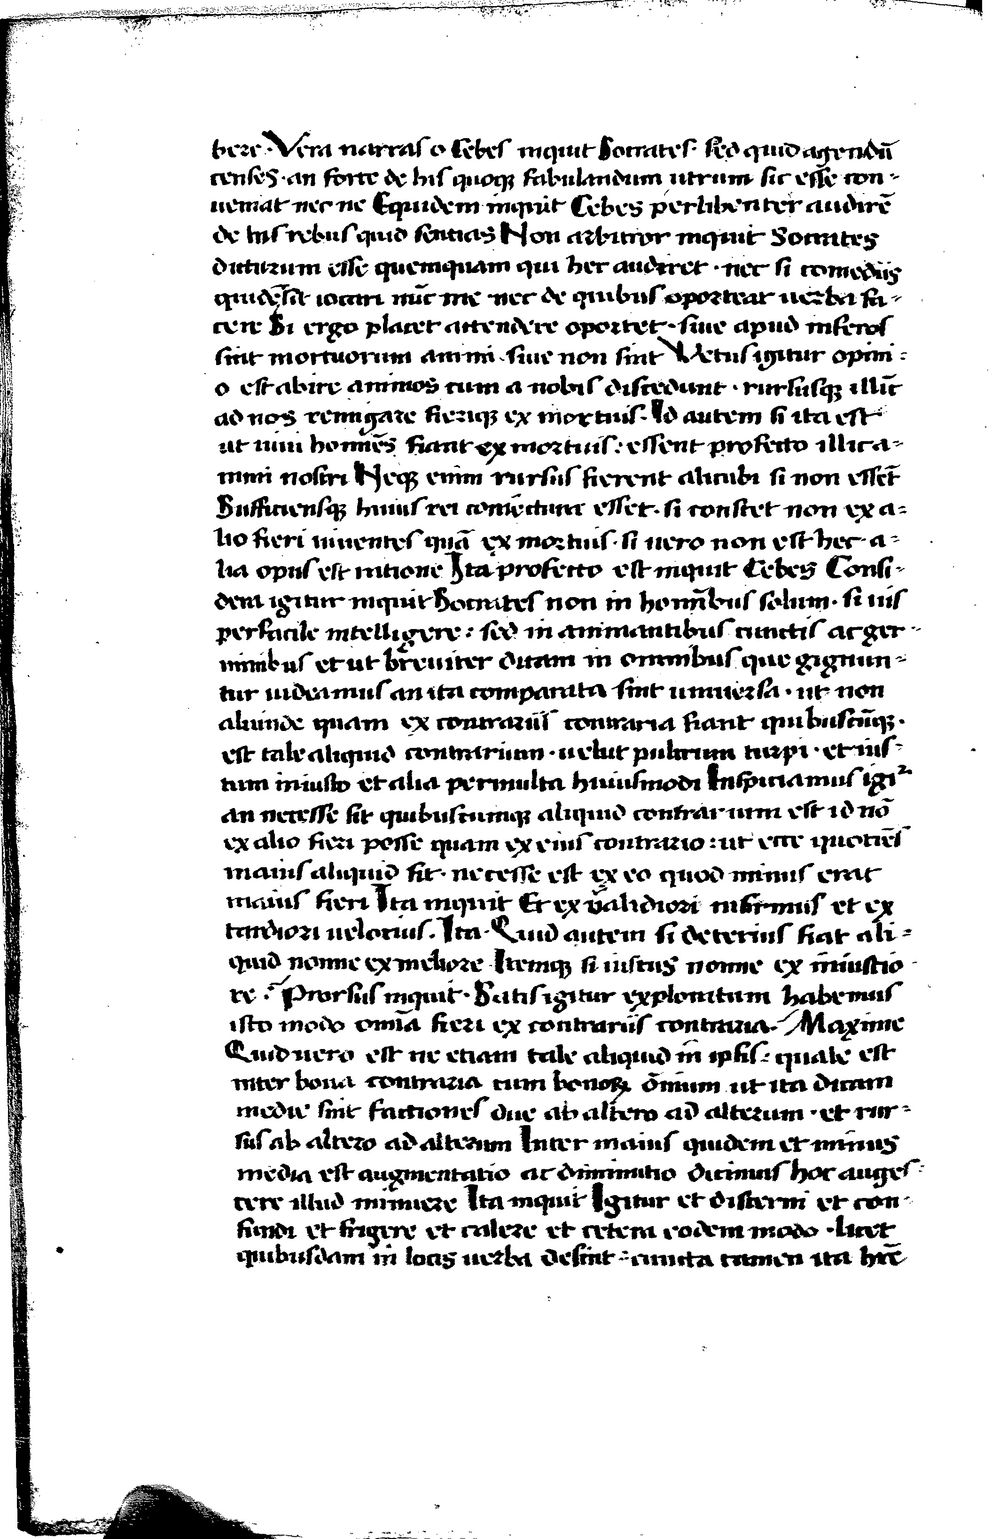 bere. Vera narras o Cebes inquit Socrates. sed quid agendū
censes. an forte de his quoqꝫ fabulandum utrum sic esse con-
ueniat nec ne Equidem inquit Cebes perlibenter audirē
de his rebus quid sentias Non arbitror inquit Socrates
dicturum esse quemquam qui hec audiret. nec si comediis
quidē sit iocari nūc me nec de quibus oporteat uerba fa-
cere Si ergo placet attendere oportet. siue apud inferos
sint mortuorum animi. siue non sint Vetus igitur opini-
o est abire animos cum a nobis discedunt. rursusqꝫ illīc
ad nos remigare fieriqꝫ ex mortuis. Id autem si ita est
ut uiui homīes fiant ex mortuis: essent profecto illic a-
nimi nostri Neqꝫ enim rursus fierent alicubi si non essēt
Sufficiensqꝫ huius rei coniectura esset. si constet non ex a-
lio fieri uiuentes quā ex mortuis. si uero non est hec. a-
lia opus est ratione Ita profecto est inquit Cebes Consi-
dera igitur inquit Socrates non in homībus solum. si uis
perfacile intelligere: sed in animantibus cunctis ac ger-
minibus et ut breuiter dicam in omnibus que gignun-
tur uideamus an ita comparata sint uniuersa. ut non
aliunde quam ex contrariis contraria fiant quibuscūqꝫ.
est tale aliquid contrarium. uelut pulcrum turpi. et ius-
tum iniusto et alia permulta huiusmodi Inspiciamus igiᵗ
an necesse sit quibuscumqꝫ aliquid contrarium est id nō
ex alio fieri posse quam ex eius contrario: ut ecce quotiēs
maius aliquid fit. necesse est ex eo quod minus erat
maius fieri Ita inquit Et ex ualidiori infirmius et ex
tardiori uelocius. Ita. Quid autem si deterius fiat ali-
quid nonne ex meliore Itemqꝫ si iustus nonne ex iniustio-
re: Prorsus inquit. Satis igitur exploratum habemus
isto modo omīa fieri ex contrariis contraria. Maxime
Quid uero est ne etiam tale aliquid in ipsis: quale est
inter bona contraria cum bonoꝝ ōmnium ut ita dicam
medie sint factiones due ab altero ad alterum. et rur-
sus ab altero ad alterum Inter maius quidem et minus
media est augmentatio ac diminutio dicimus hoc auges-
cere illud minuere Ita inquit Igitur et discerni et con-
fundi et frigere et calere et cetera eodem modo. licet
quibusdam in locis uerba desint: cuncta tamen ita hrē